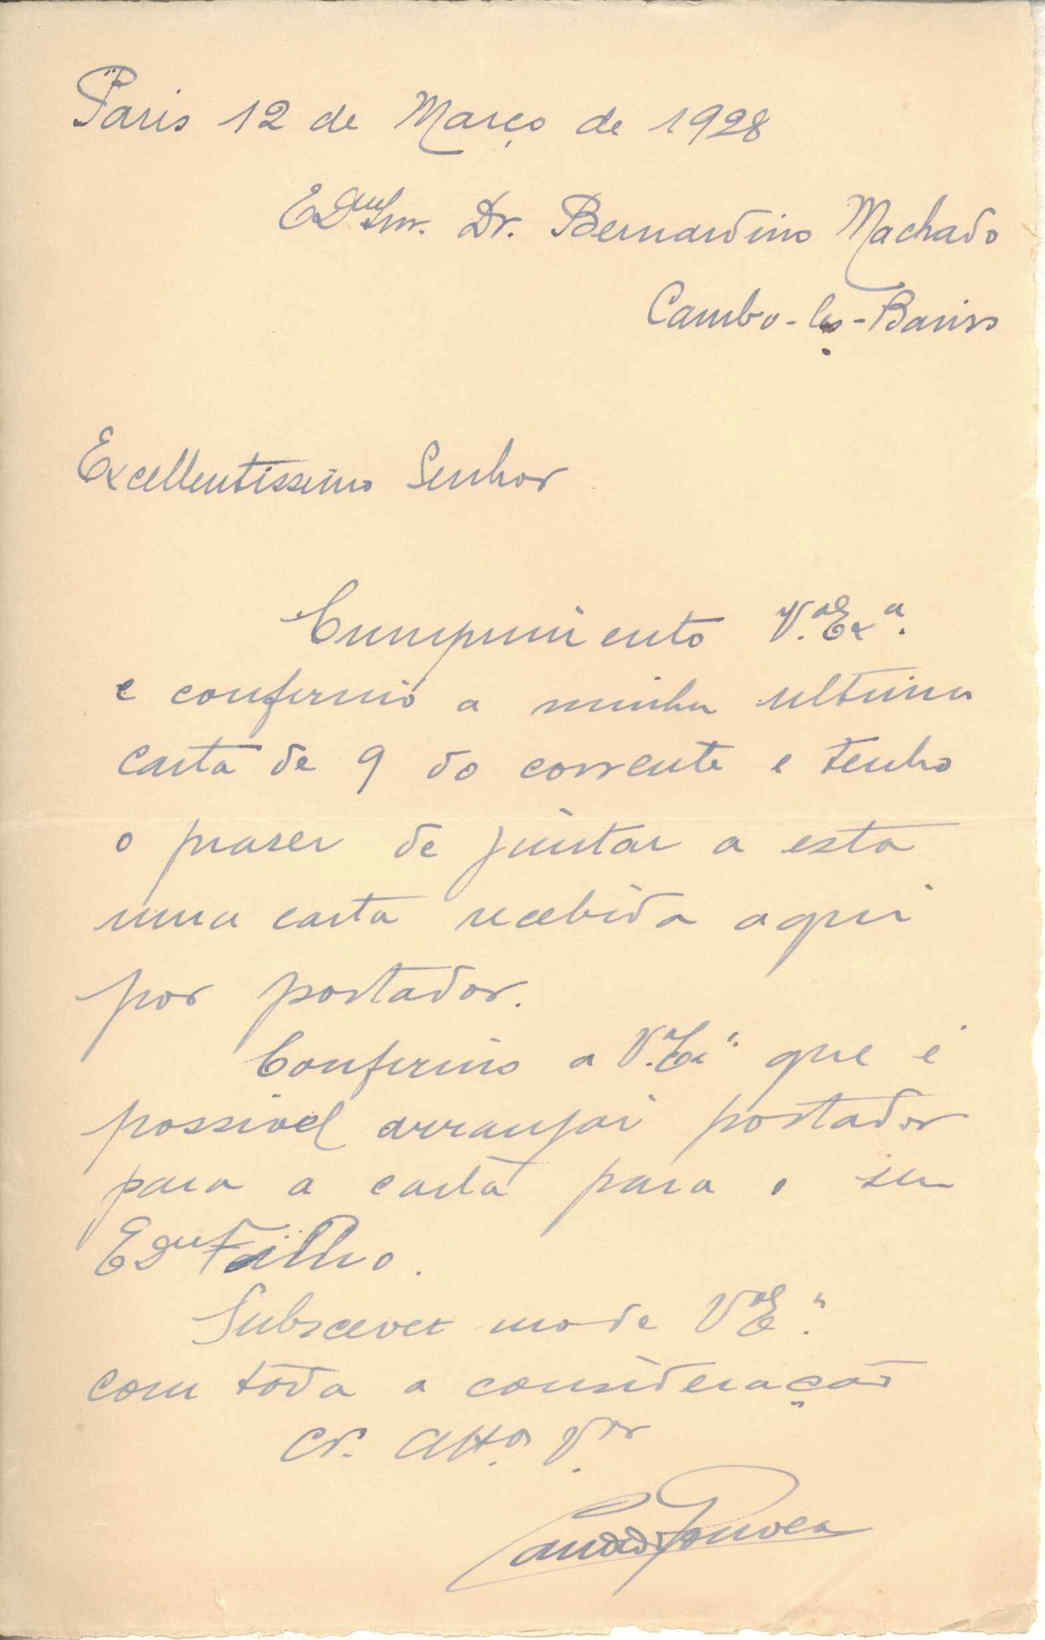 Paris 12 de Março de 1928
Exmo Snr. Dr. Bernardino Machado
Cambo-les-Bains
Excellentissimo Senhor
Cumprimento V.ª Exª.
e confirmo a minha ultima
carta de 9 do corrente e tenho
o praser de juntar a esta
uma carta recebida aqui
por portador.
Confirmo a V.ª Exª que é
possivel arranjar portador
para a carta para o seu
Exmo Filho.
Subscevet mo de V.ª Eª.
com toda a consideração
Cr. Attº. V.or